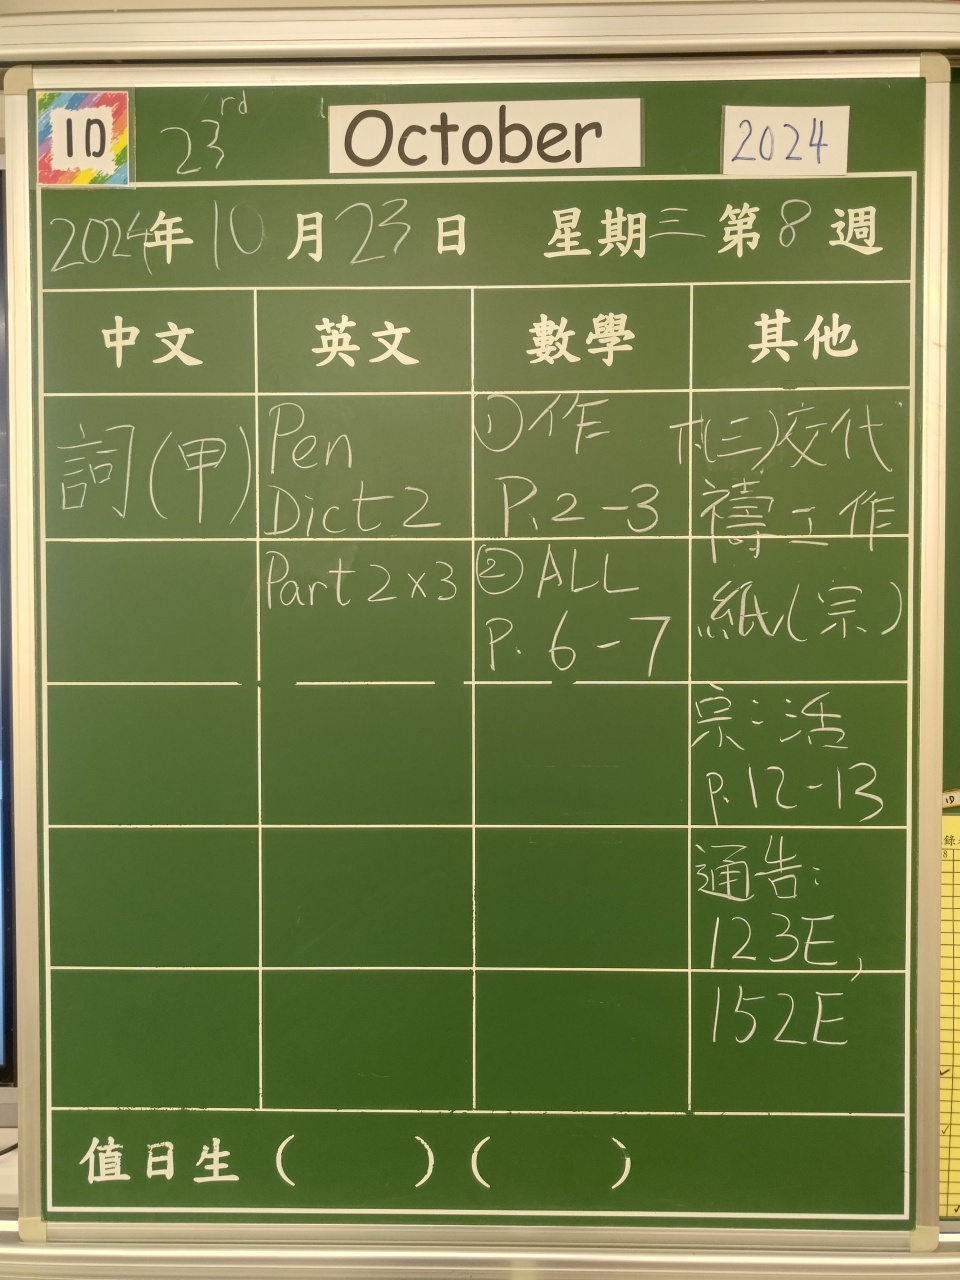 1D 23rd October 2024
2024年10月23日 星期三 第8週
中文 英文 數學 其他
詞(甲)
Pen
Dict 2
Part 2 x3
①作
P.2-3
②ALL
P.6-7
(三)交代
禱工作
紙(宗)
宗:活
p.12-13
通告:
123E,
152E
值日生 ( ) ( )